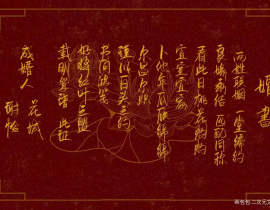 婚书
两姓联姻 一堂缔约
良缘永结 匹配同称
看此日桃花灼灼
宜室宜家
卜他年瓜瓞绵绵
尔昌尔炽
谨以白头之约
书向鸿笺
好将红叶之盟
载明鸳谱 此证
成婚人 花城
谢怜
包包二次元文